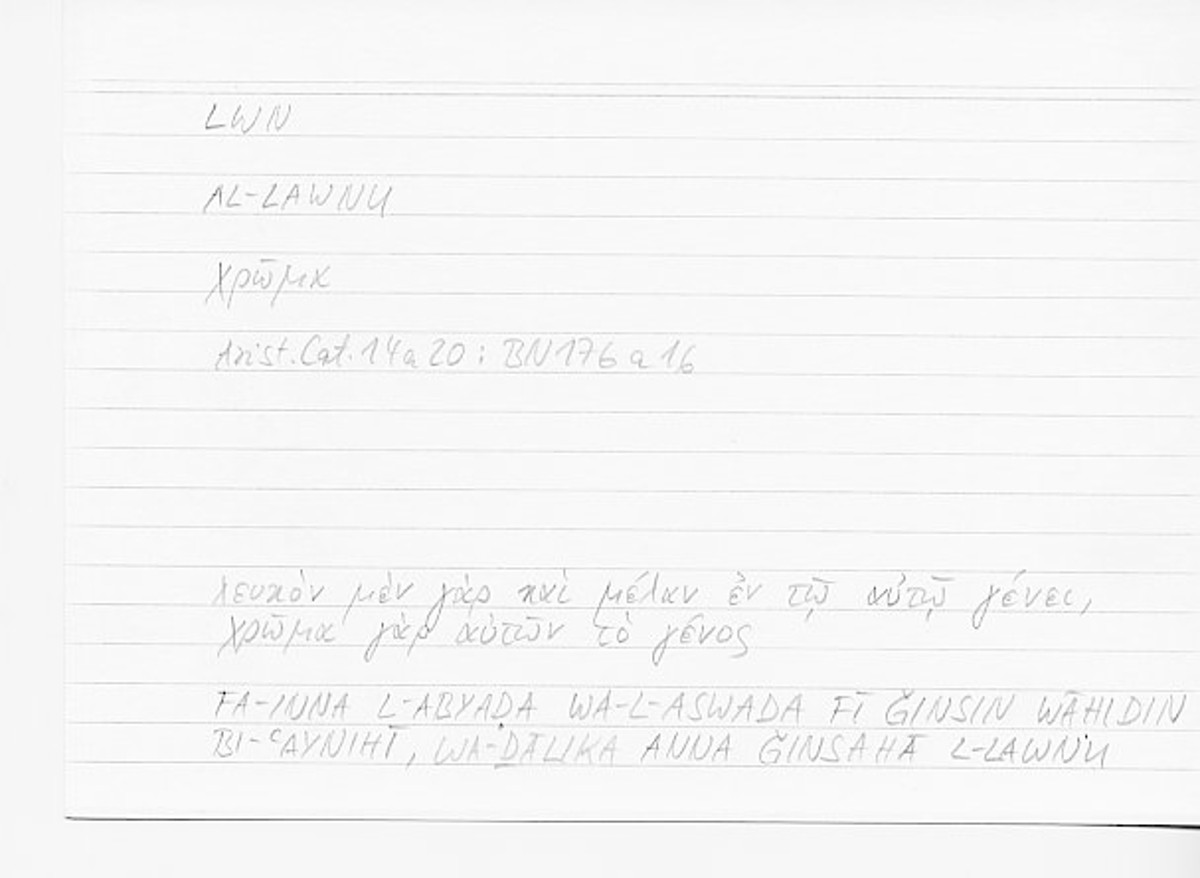 LWN
AL-LAWNU
χρῶμα
Arist. Cat. 14 a 20 : BN 176 a 16
λευκὸν μὲν γὰρ καὶ μέλαν ἐν τῷ αὐτῷ γένει,
χρῶμα γὰρ αὐτῶν τὸ γένος
FA-INNA L-ABYAḌA WA-L-ASWADA FĪ ǦINSIN WĀHIDIN
BI-ʿAYNIHĪ, WA-ḎĀLIKA ANNA ǦINSAHĀ L-LAWNU